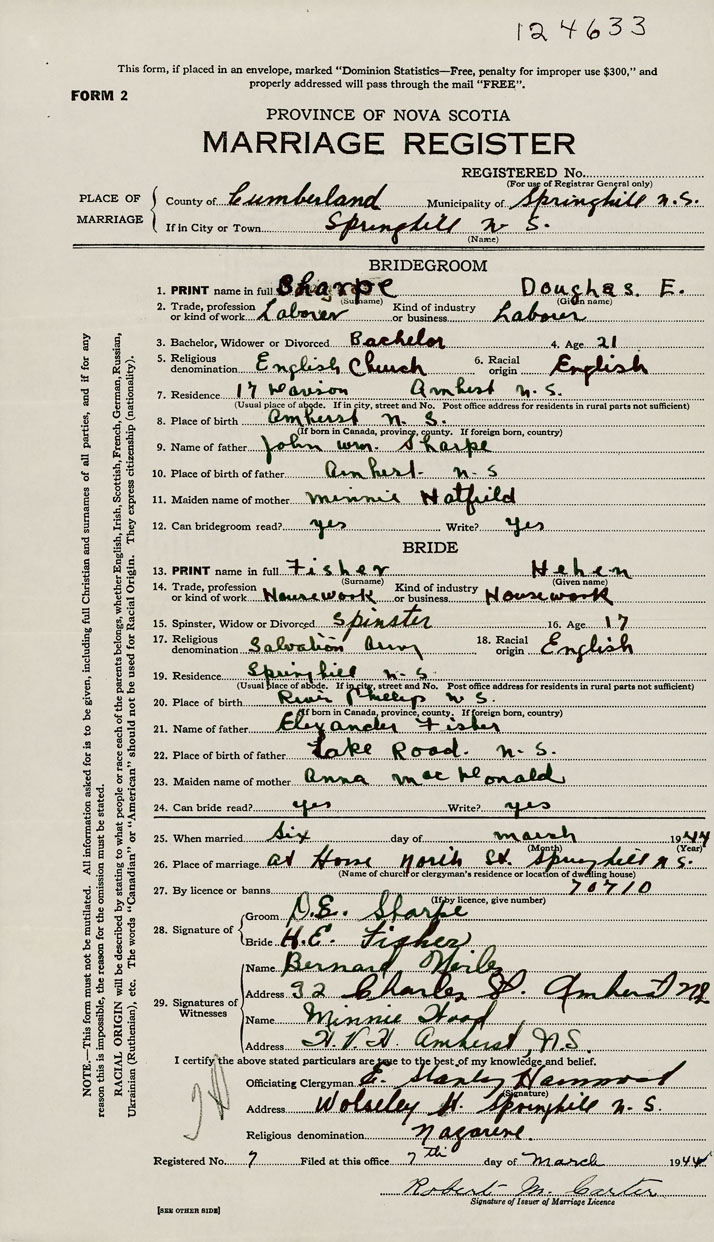 124633
This form, if placed in an envelope, marked "Dominion Statistics—Free, penalty for improper use $300," and
properly addressed will pass through the mail "FREE".
FORM 2
PROVINCE OF NOVA SCOTIA
MARRIAGE REGISTER
REGISTERED No.
(For use of Registrar General only)
PLACE OF MARRIAGE
County of Cumberland Municipality of Springhill N.S.
If in City or Town Springhill N S.
(Name)
BRIDEGROOM
1. PRINT name in full Sharpe Douglas E.
(Surname) (Given name)
2. Trade, profession or kind of work Laborer Kind of industry or business Labour
3. Bachelor, Widower or Divorced Bachelor 4. Age 21
5. Religious denomination English Church 6. Racial origin English
7. Residence 17 Amherst N.S.
(Usual place of abode. If in city, street and No. Post office address for residents in rural parts not sufficient)
8. Place of birth Amherst N. S.
(If born in Canada, province, county. If foreign born, country)
9. Name of father John Wm. Sharpe
10. Place of birth of father Amherst N-S
11. Maiden name of mother Minnie Hatfield
12. Can bridegroom read? yes Write? yes
BRIDE
13. PRINT name in full Fisher Helen
(Surname) (Given name)
14. Trade, profession or kind of work Housework Kind of industry or business Housework
15. Spinster, Widow or Divorced Spinster 16. Age 17
17. Religious denomination Salvation Army 18. Racial origin English
19. Residence Springhill N-S
(Usual place of abode. If in city, street and No. Post office address for residents in rural parts not sufficient)
20. Place of birth River Philip N S.
(If born in Canada, province, county. If foreign born, country)
21. Name of father Elexander Fisher
22. Place of birth of father Lake Road. N-S.
23. Maiden name of mother Anna MacDonald
24. Can bride read? yes Write? yes
25. When married Six day of March 1944
(Month) (Year)
26. Place of marriage at Home North St. Springhill N S.
(Name of church or clergyman's residence or location of dwelling house)
27. By licence or banns 70710
(If by licence, give number)
28. Signature of Groom D.E. Sharpe
Bride H.E. Fisher
29. Signatures of Witnesses
Name Bernard
Address 92 Charles St. Amherst NS
Name Minnie Wood
Address Amherst, N.S.
I certify the above stated particulars are true to the best of my knowledge and belief.
Officiating Clergyman E. Stanley
(Signature)
Address Wolseley St. Springhill N. S.
Religious denomination Nazarene.
Registered No. 7 Filed at this office 7th day of March 1944
Robert M. Carter
Signature of Issuer of Marriage Licence
[SEE OTHER SIDE]
NOTE.—This form must not be mutilated. All information asked for is to be given, including full Christian and surnames of all parties, and if for any
reason this is impossible, the reason for the omission must be stated.
RACIAL ORIGIN will be described by stating to what people or race each of the parents belongs, whether English, Irish, Scottish, French, German, Russian,
Ukrainian (Ruthenian), etc. The words "Canadian" or "American" should not be used for Racial Origin. They express citizenship (nationality).